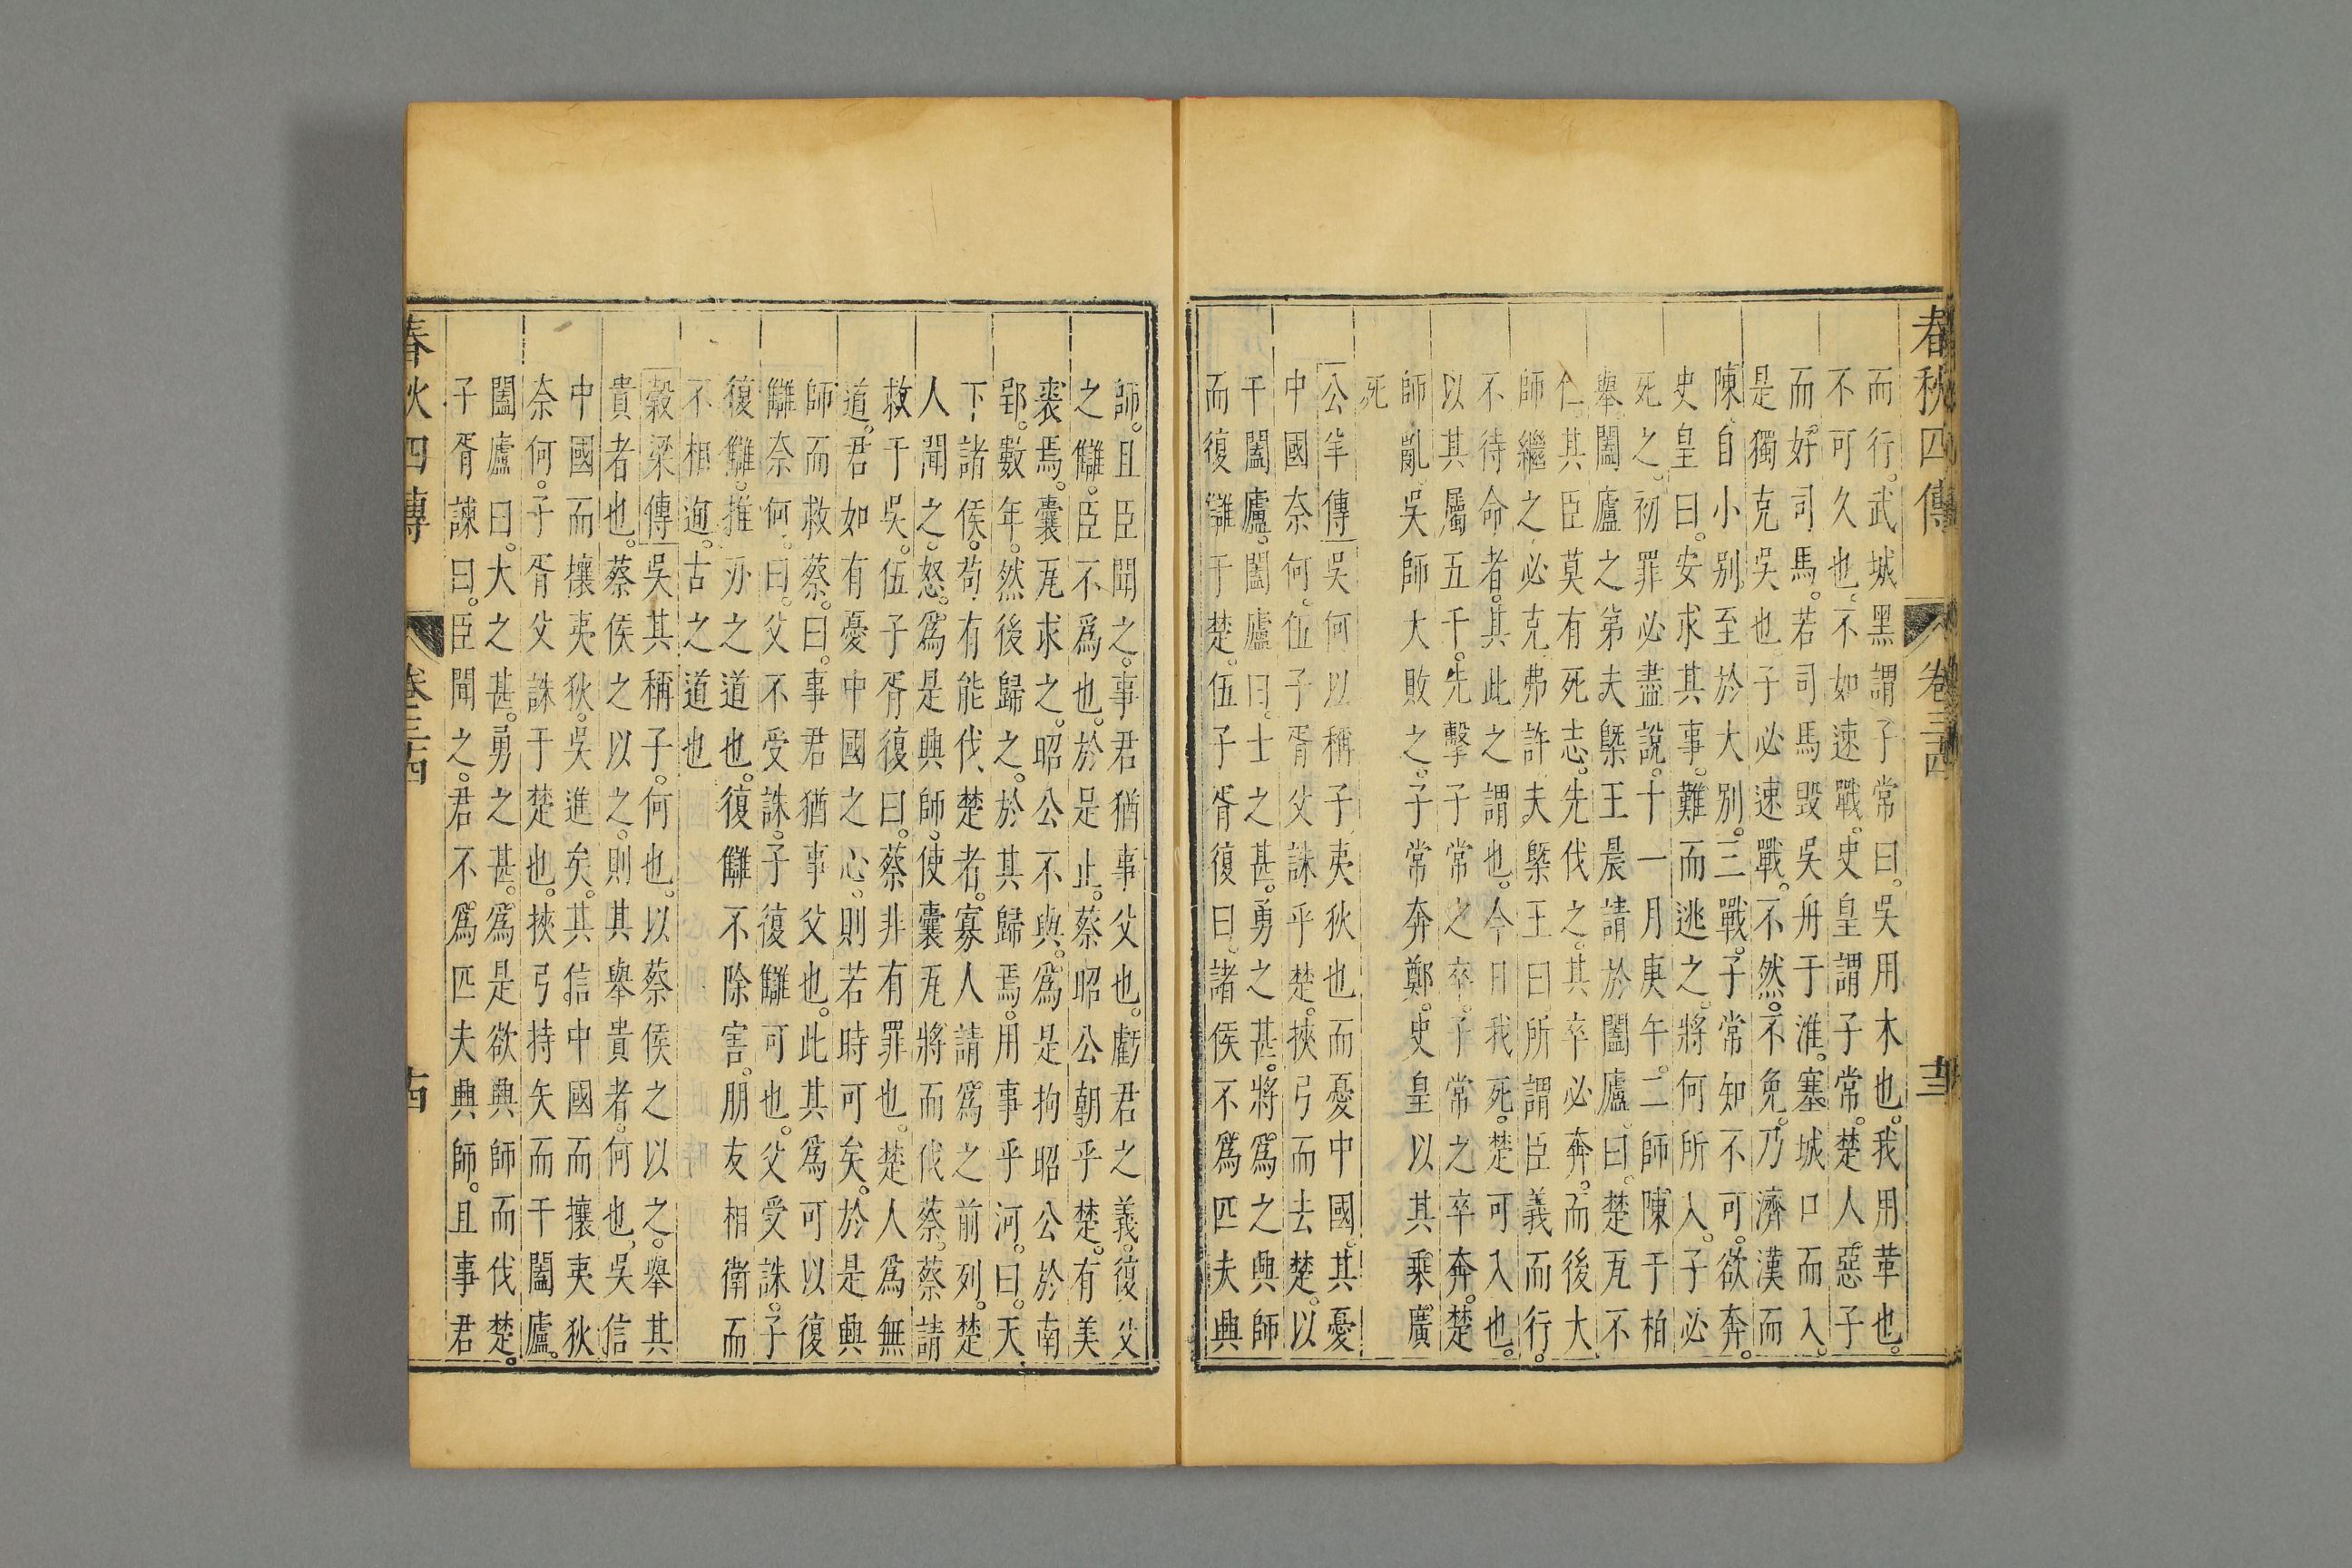 春秋四傳 卷三四 十三
而行武城黑謂子常曰吳用木也我用革也
不可久也不如速戰史皇謂子常楚人惡子
而好司馬若司馬毀吳舟于淮塞城口而入
是獨克吳也子必速戰不然不免乃濟漢而
陳自小别至於大别三戰子常知不可欲奔
史皇曰安求其事難而逃之將何所入子必
死之初罪必盡說十一月庚午二師陳于柏
舉闔廬之弟夫槩王晨請於闔廬曰楚瓦不
仁其臣莫有死志先伐之其卒必奔而後大
師繼之必克弗許夫槩王曰所謂臣義而行
不待命者其此之謂也今日我死楚可入也
以其屬五千先擊子常之卒子常之卒奔楚
師亂吳師大敗之子常奔鄭史皇以其乘廣
死
公羊傳吳何以稱子夷狄也而憂中國其憂
中國奈何伍子胥父誅乎楚挾弓而去楚以
干闔廬闔廬曰士之甚勇之甚將為之興師
而復讎于楚伍子胥復曰諸侯不為匹夫興
師且臣聞之事君猶事父也虧君之義復父
之讎臣不為也於是止蔡昭公朝乎楚有美
裘焉囊瓦求之昭公不與為是拘昭公於南
郢數年然後歸之於其歸焉用事乎河曰天
下諸侯苟有能伐楚者寡人請為之前列楚
人聞之怒為是興師使囊瓦將而伐蔡蔡請
救于吳伍子胥復曰蔡非有罪也楚人為無
道君如有憂中國之心則若時可矣於是興
師而救蔡曰事君猶事父也此其為可以復
讎奈何曰父不受誅子復讎可也父受誅子
復讎推刃之道也復讎不除害朋友相衛而
不相迿古之道也
穀梁傳吳其稱子何也以蔡侯之以之舉其
貴者也蔡侯之以之則其舉貴者何也吳信
中國而攘夷狄吳進矣其信中國而攘夷狄
奈何子胥父誅于楚也挾弓持矢而干闔廬
闔廬曰大之甚勇之甚為是欲興師而伐楚
子胥諫曰臣聞之君不為匹夫興師且事君
春秋四傳 卷三四 十四